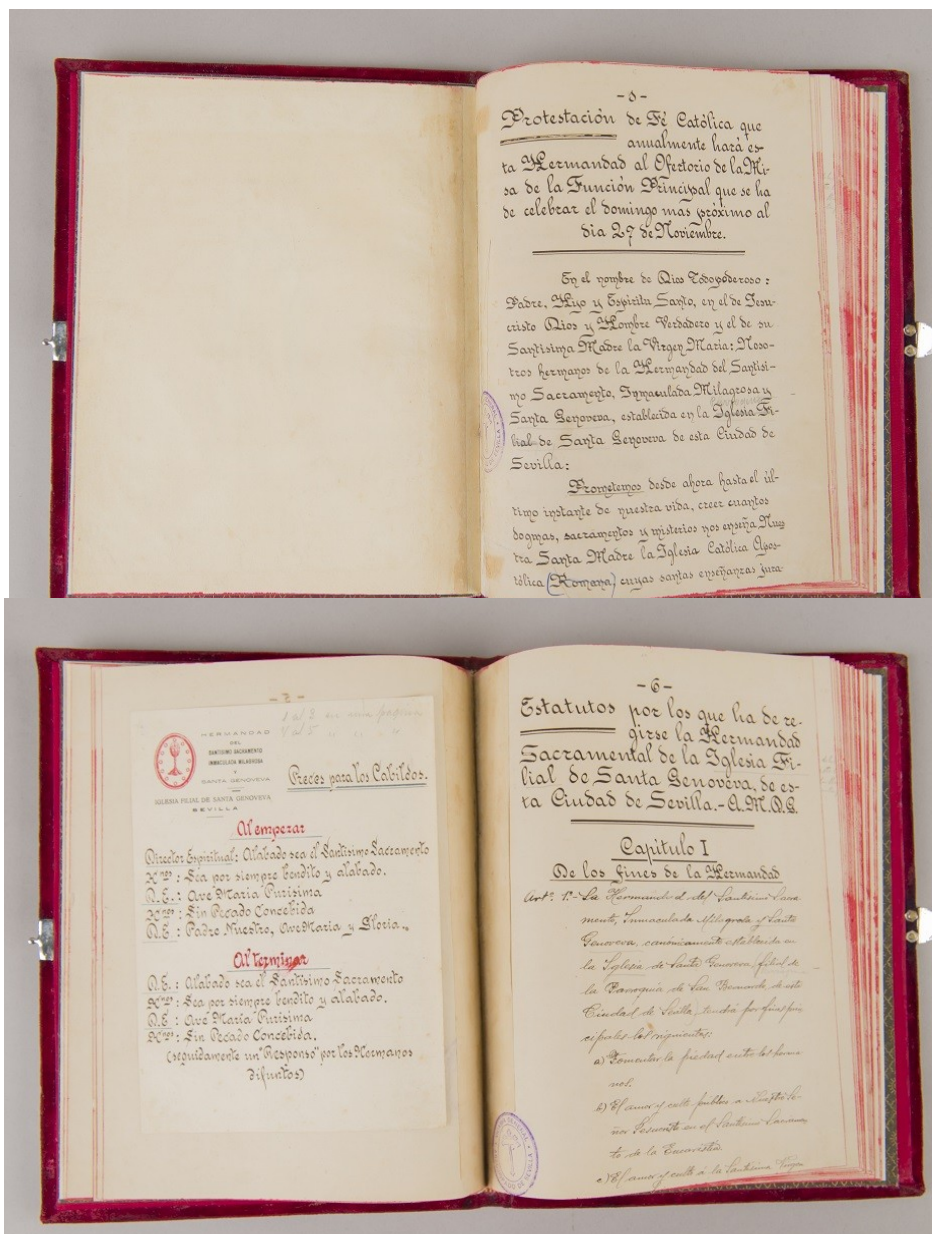 Protestación de Fé Católica que
anualmente hará es-
ta Hermandad al Ofertorio de la Mi-
sa de la Función Principal que se ha
de celebrar el domingo mas próximo al
dia 27 de Noviembre.
En el nombre de Dios Todopoderoso:
Padre, Hijo y Espíritu Santo, en el de Jesu-
cristo Dios y Hombre Verdadero y el de su
Santísima Madre la Virgen María: Noso-
tros hermanos de la Hermandad del Santísi-
mo Sacramento, Inmaculada Milagrosa y
Santa Genoveva, establecida en la Iglesia Fi-
lial de Santa Genoveva de esta Ciudad de
Sevilla:
Prometemos desde ahora hasta el úl-
timo instante de nuestra vida, creer cuantos
dogmas, sacramentos y misterios nos enseña Nues
tra Santa Madre la Iglesia Católica Apos-
tólica (Romana) cuyas santas enseñanzas jura-
1 al 3 en una pagina
HERMANDAD
DEL
SANTISIMO SACRAMENTO
INMACULADA MILAGROSA
Y
SANTA GENOVEVA
IGLESIA FILIAL DE SANTA GENOVEVA
SEVILLA
Preces para los Cabildos.
Al empezar
Director Espiritual: Alabado sea el Santísimo Sacramento
Hnos: Sea por siempre bendito y alabado.
D.E.: Ave María Purísima
Hnos: Sin Pecado Concebida
D.E: Padre Nuestro, Ave María y Gloria.
Al terminar
D.E.: Alabado sea el Santísimo Sacramento
Hnos: Sea por siempre bendito y alabado.
D.E: Ave María Purísima
Hnos: Sin Pecado Concebida.
(seguidamente un "Responso" por los Hermanos
difuntos)
-6-
Estatutos por los que ha de re-
girse la Hermandad
Sacramental de la Iglesia Fi-
lial de Santa Genoveva, de es-
ta Ciudad de Sevilla.-A.M.D.G.
Capitulo I
De los fines de la Hermandad
Artº. 1º- La Hermandad del Santísimo Sacra
mento, Inmaculada Milagrosa y Santa
Genoveva, canónicamente establecida en
la Iglesia de Santa Genoveva, filial de
la Parroquia de San Bernardo, de esta
Ciudad de Sevilla, tendrá por fines prin
cipales los siguientes:
a) Fomentar la piedad entre los herma
nos.
b) El amor y culto público a Nuestro Se-
ñor Jesucristo en el Santísimo Sacramen
to de la Eucaristía.
c) El amor y culto á la Santísima Virgen